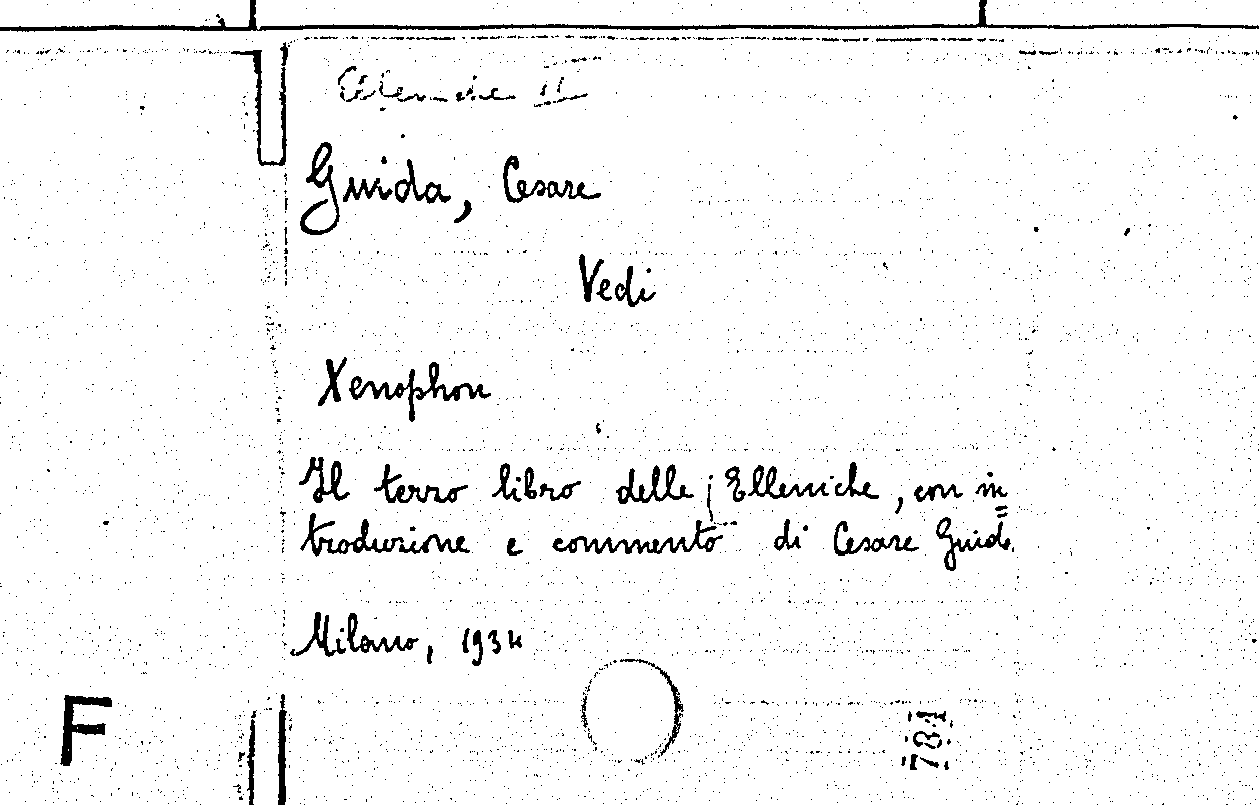 Elleniche II
Guida, Cesare
Vedi
Xenophon
Il terzo libro delle Elleniche, con in=
troduzione e commento di Cesare Guida
Milano, 1934
F
781